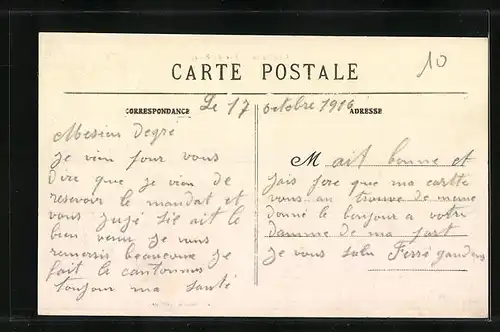 10
CARTE POSTALE
CORRESPONDANCE
ADRESSE
Le 17 octobre 1916
Mesieur Degre
je vien pour vous
dire que je vien de
resevoir le mandat et
vous jugé sil ait le
bien venu je vous
remersis beaucoup je
fait le cantonnus
toujour ma santé
M ait bonne et
jais pere que ma cartte
vous an trouve de meme
donné le bonjour a votre
damme de ma part
je vous salu Ferré gaudens